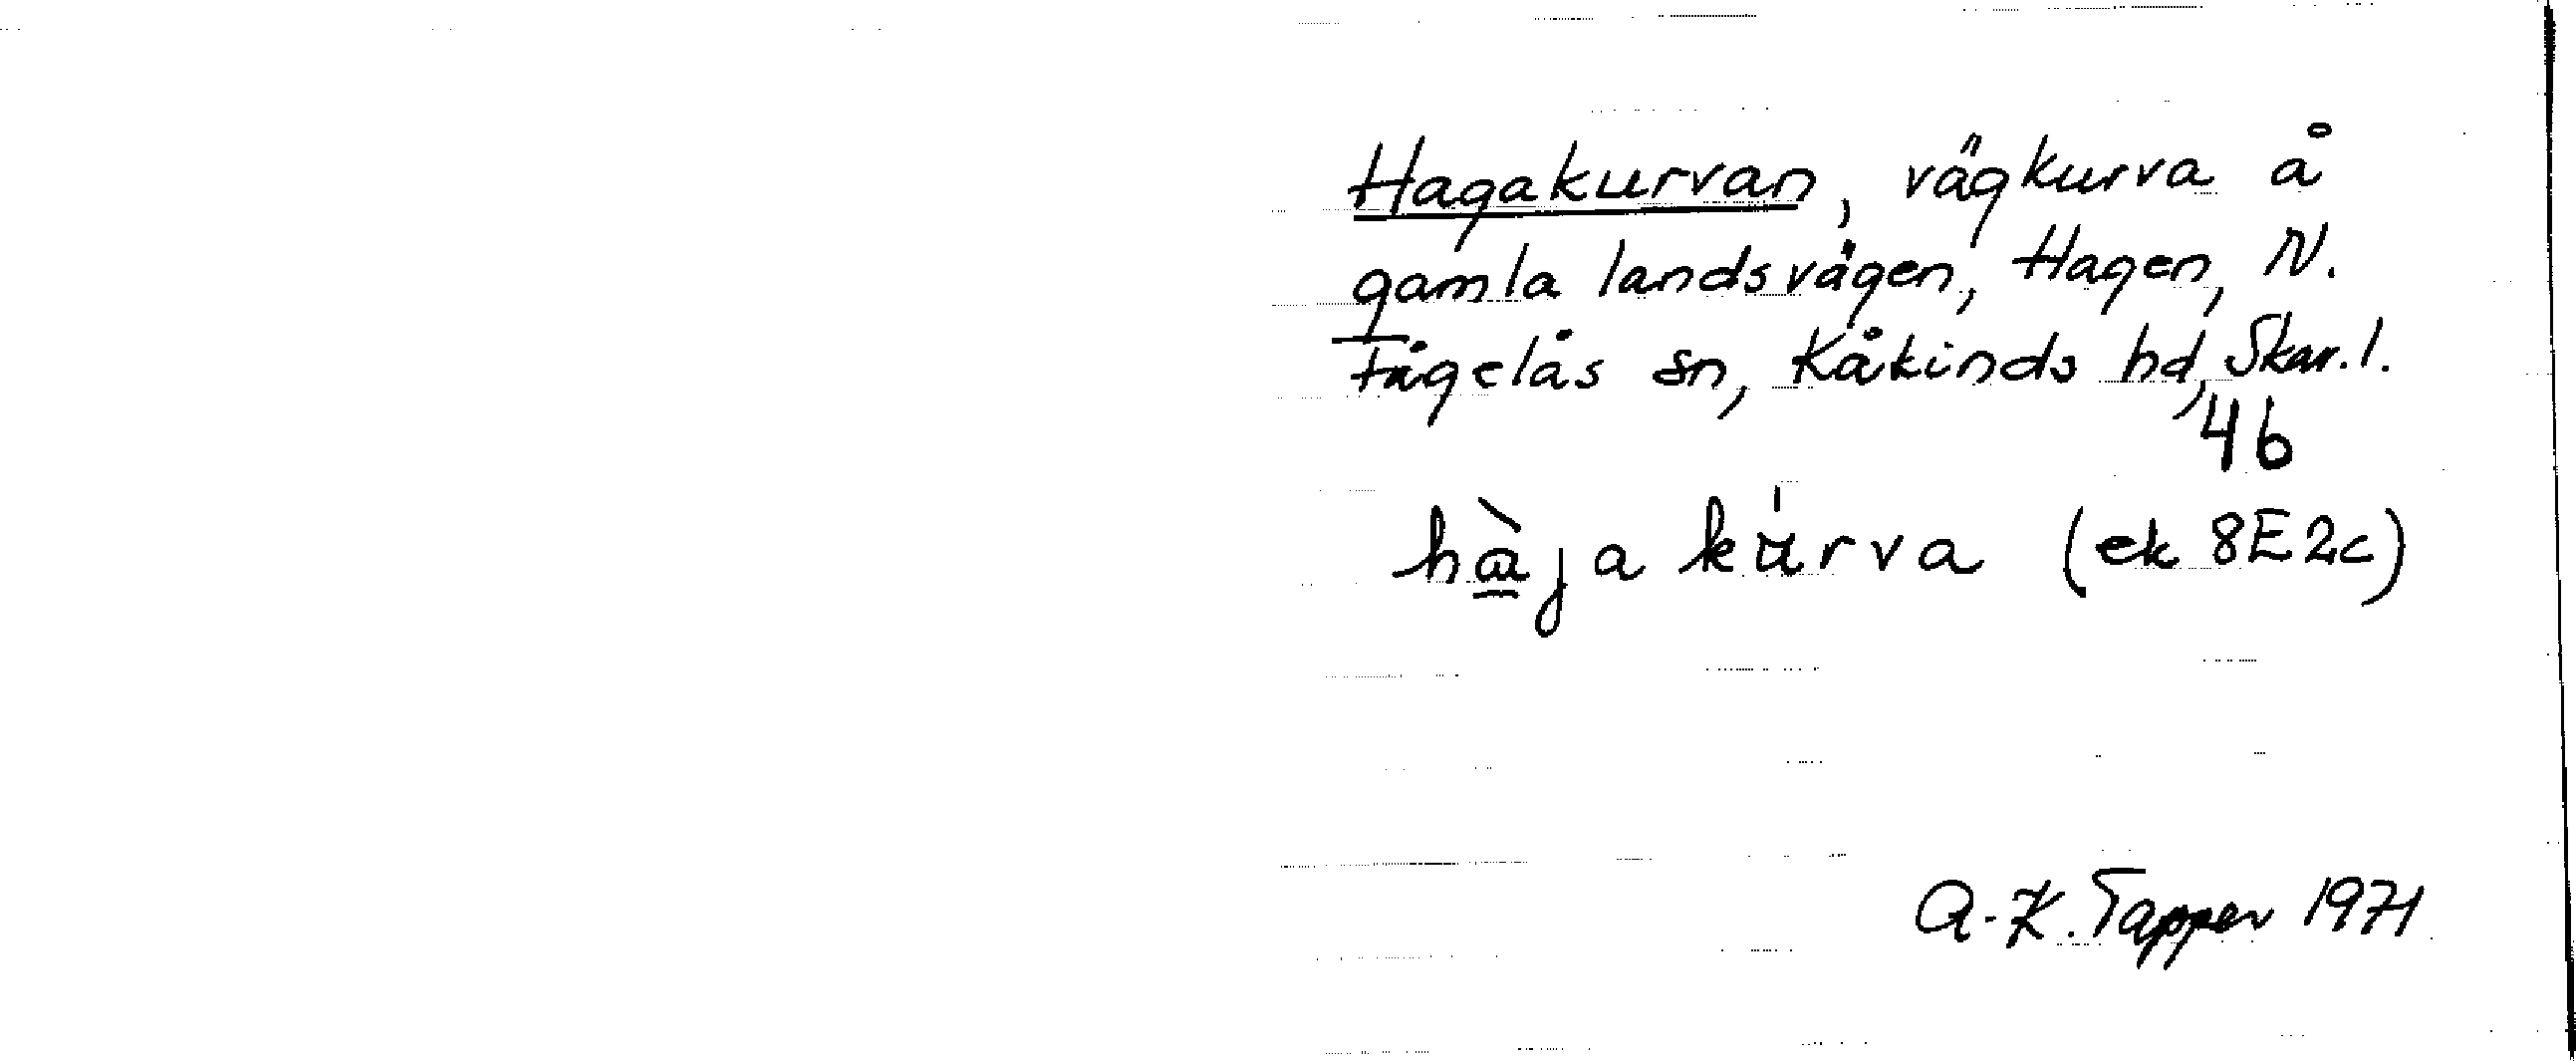 Hagakurvan, vägkurva å
gamla landsvägen, Hagen, N.
Fågelås sn, Kåkinds hd, Skar.l.
46
hàja kúrva (ek 8E2c)
A-K. Tapper 1971